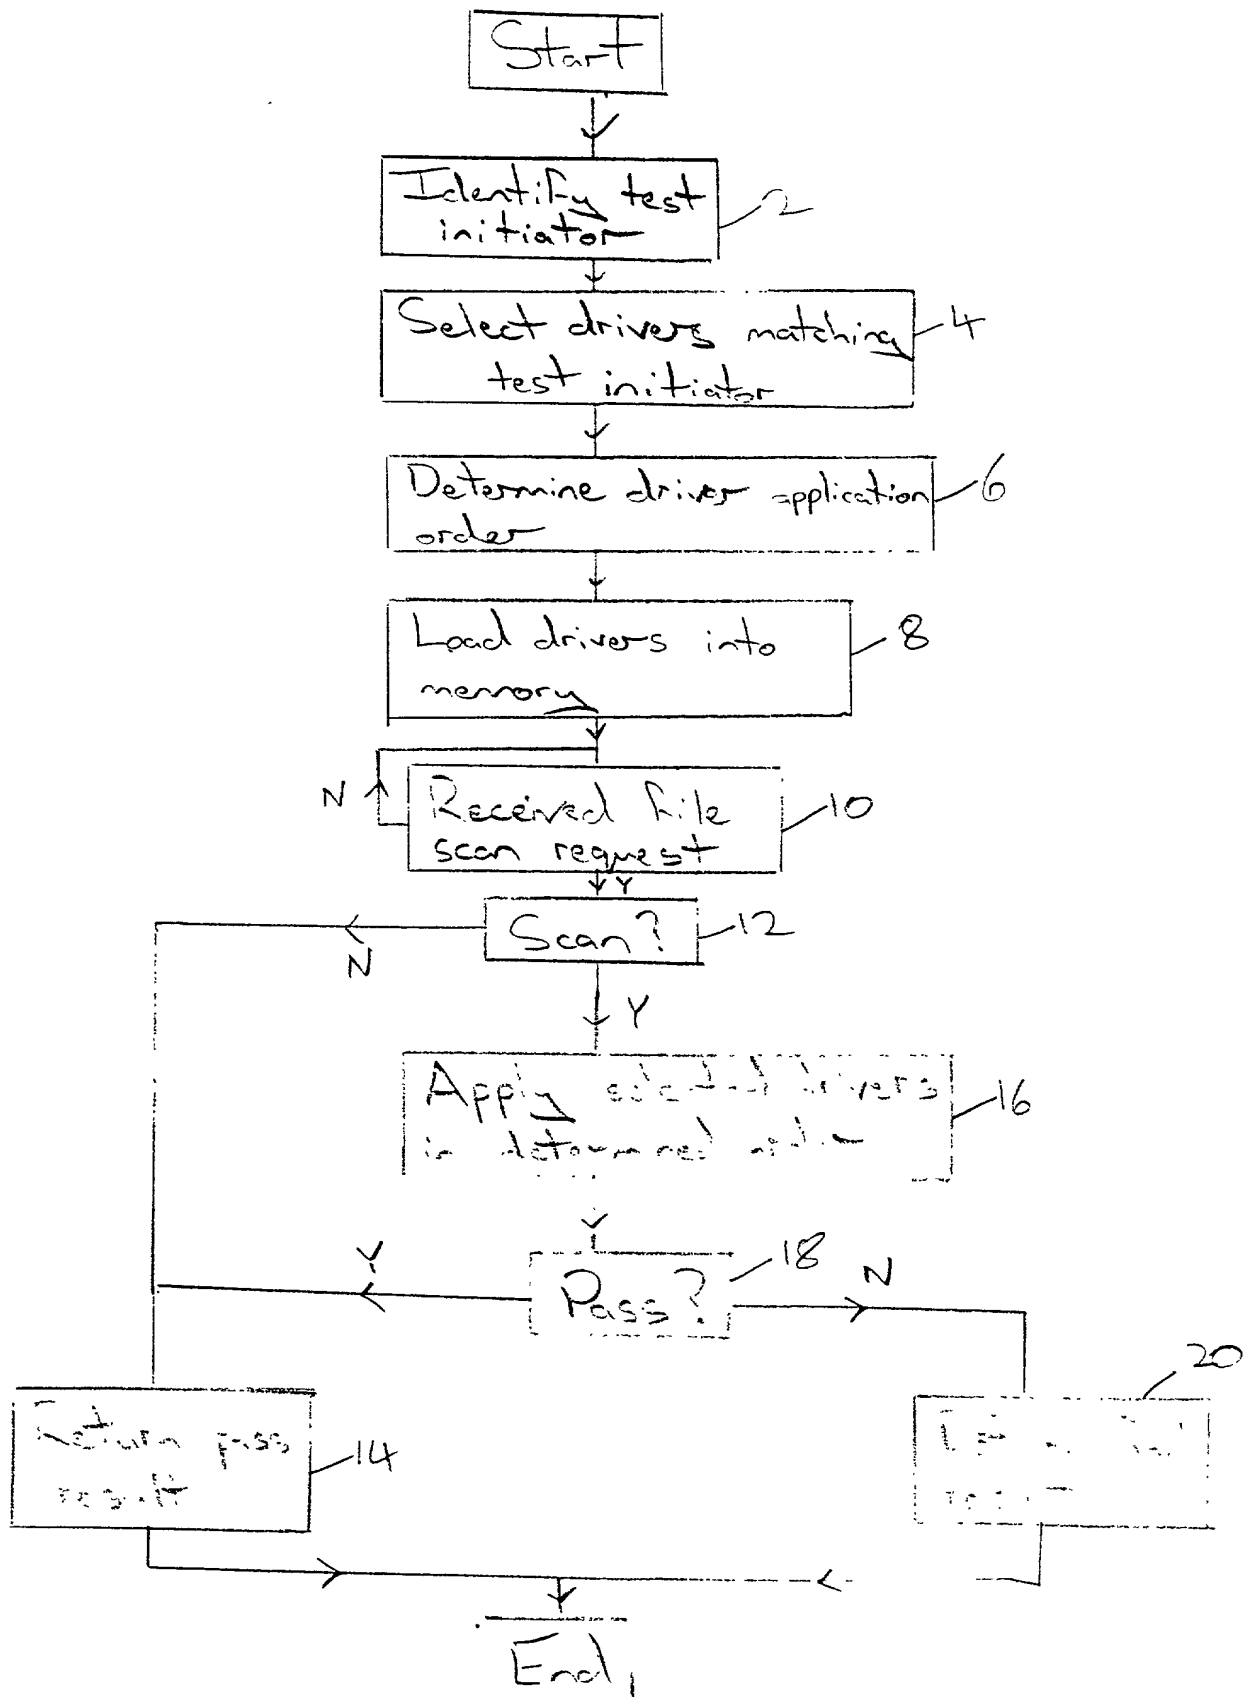 Start
Identify test
initiator
2
Select drivers matching
test initiator
4
Determine driver application
order
6
Load drivers into
memory
8
N
Received file
scan request
10
Y
Scan?
12
N
Y
Apply selected drivers
in determined order
16
Pass?
18
Y
N
Return pass
result
14
20
result
End